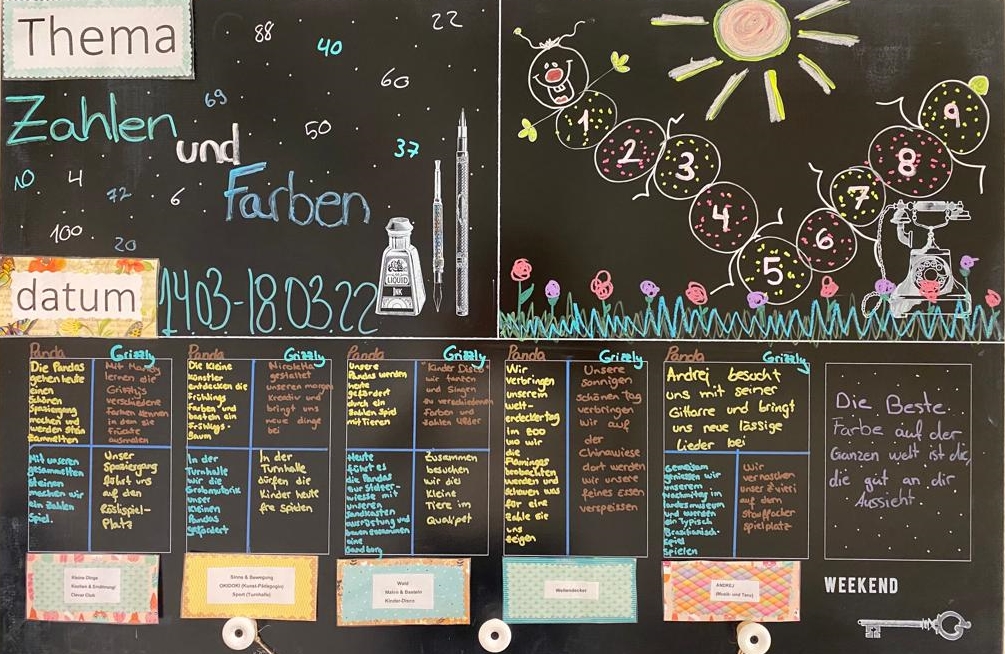 Thema
88
40
22
60
Zahlen
69
und
50
37
10
4
72
6
Farben
100
20
LIQUID
INK
datum
14.03-18.03.22
1
2
3
4
5
6
7
8
9
Panda
Die Pandas
gehen heute
einen
Schönen
Spaziergang
machen und
werden
sammelten
Grizzly
lernen die
Grizzlys
verschiedene
Farben kennen
in dem sie
Früchte
ausmalen
Mit unseren
gesammelten
Steinen
machen wir
ein Zahlen
Spiel.
Unser
Spaziergang
führt uns
auf den
Platz
Panda
Die Kleine
Künstler
entdecken die
Frühlings
Farben und
basteln ein
Frühlings-
Baum
Grizzly
Nicoletta
gestaltet
unseren morgen
Kreativ und
bringt uns
neue dinge
bei
In der
Turnhalle
wir die
Grobmotorik
unser
Kleinen
Pandas
gefördert
In der
Turnhalle
dürfen die
Kinder heute
frei Spielen
Panda
Unsere
Pandas werden
heute
gefördert
durch ein
Zahlen Spiel
mit Tieren
Grizzly
"Kinder Disco"
wir tanzen
und Singen
zu verschiedenen
Farben und
Zahlen Lieder
Heute
führt es
die Pandas
wiese mit
unseren
Sandkasten
ausrüstung und
bauen zusammen
eine
Sandburg
Zusammen
besuchen
wir die
Kleine
Tiere im
Panda
Wir
verbringen
unserem
welt-
endeckertag
im Zoo
wo wir
die
Flamingos
beobachten
werden und
schauen was
für eine
Zahle sie
uns
zeigen
Grizzly
Unsere
Sonnigen
schönen Tag
verbringen
wir auf
der
Chinawiese
dort werden
wir unsere
feines essen
verspeissen
Panda
Grizzly
Andrej besucht
uns mit seiner
Gittarre und bringt
uns neue lässige
Lieder bei
Gemeinsam
geniessen wir
unserem
Nachmittag im
landesmuseum
und werden
ein Typisch
Brasilianisch-
Spiel
Spielen
Wir
vernaschen
unser Zvieri
auf dem
stauffacher
spielplatz
Die Beste
Farbe auf der
Ganzen welt ist die,
die gut an dir
Aussieht.
Kleine Dinge
Kochen & Ernährung/
Clever Club
Sinne & Bewegung
OKIDOKI (Kunst-Pädagogin)
Sport (Turnhalle)
Wald
Malen & Basteln
Kinder-Disco
Weltendecker
ANDREJ
(Musik- und Tanz)
WEEKEND